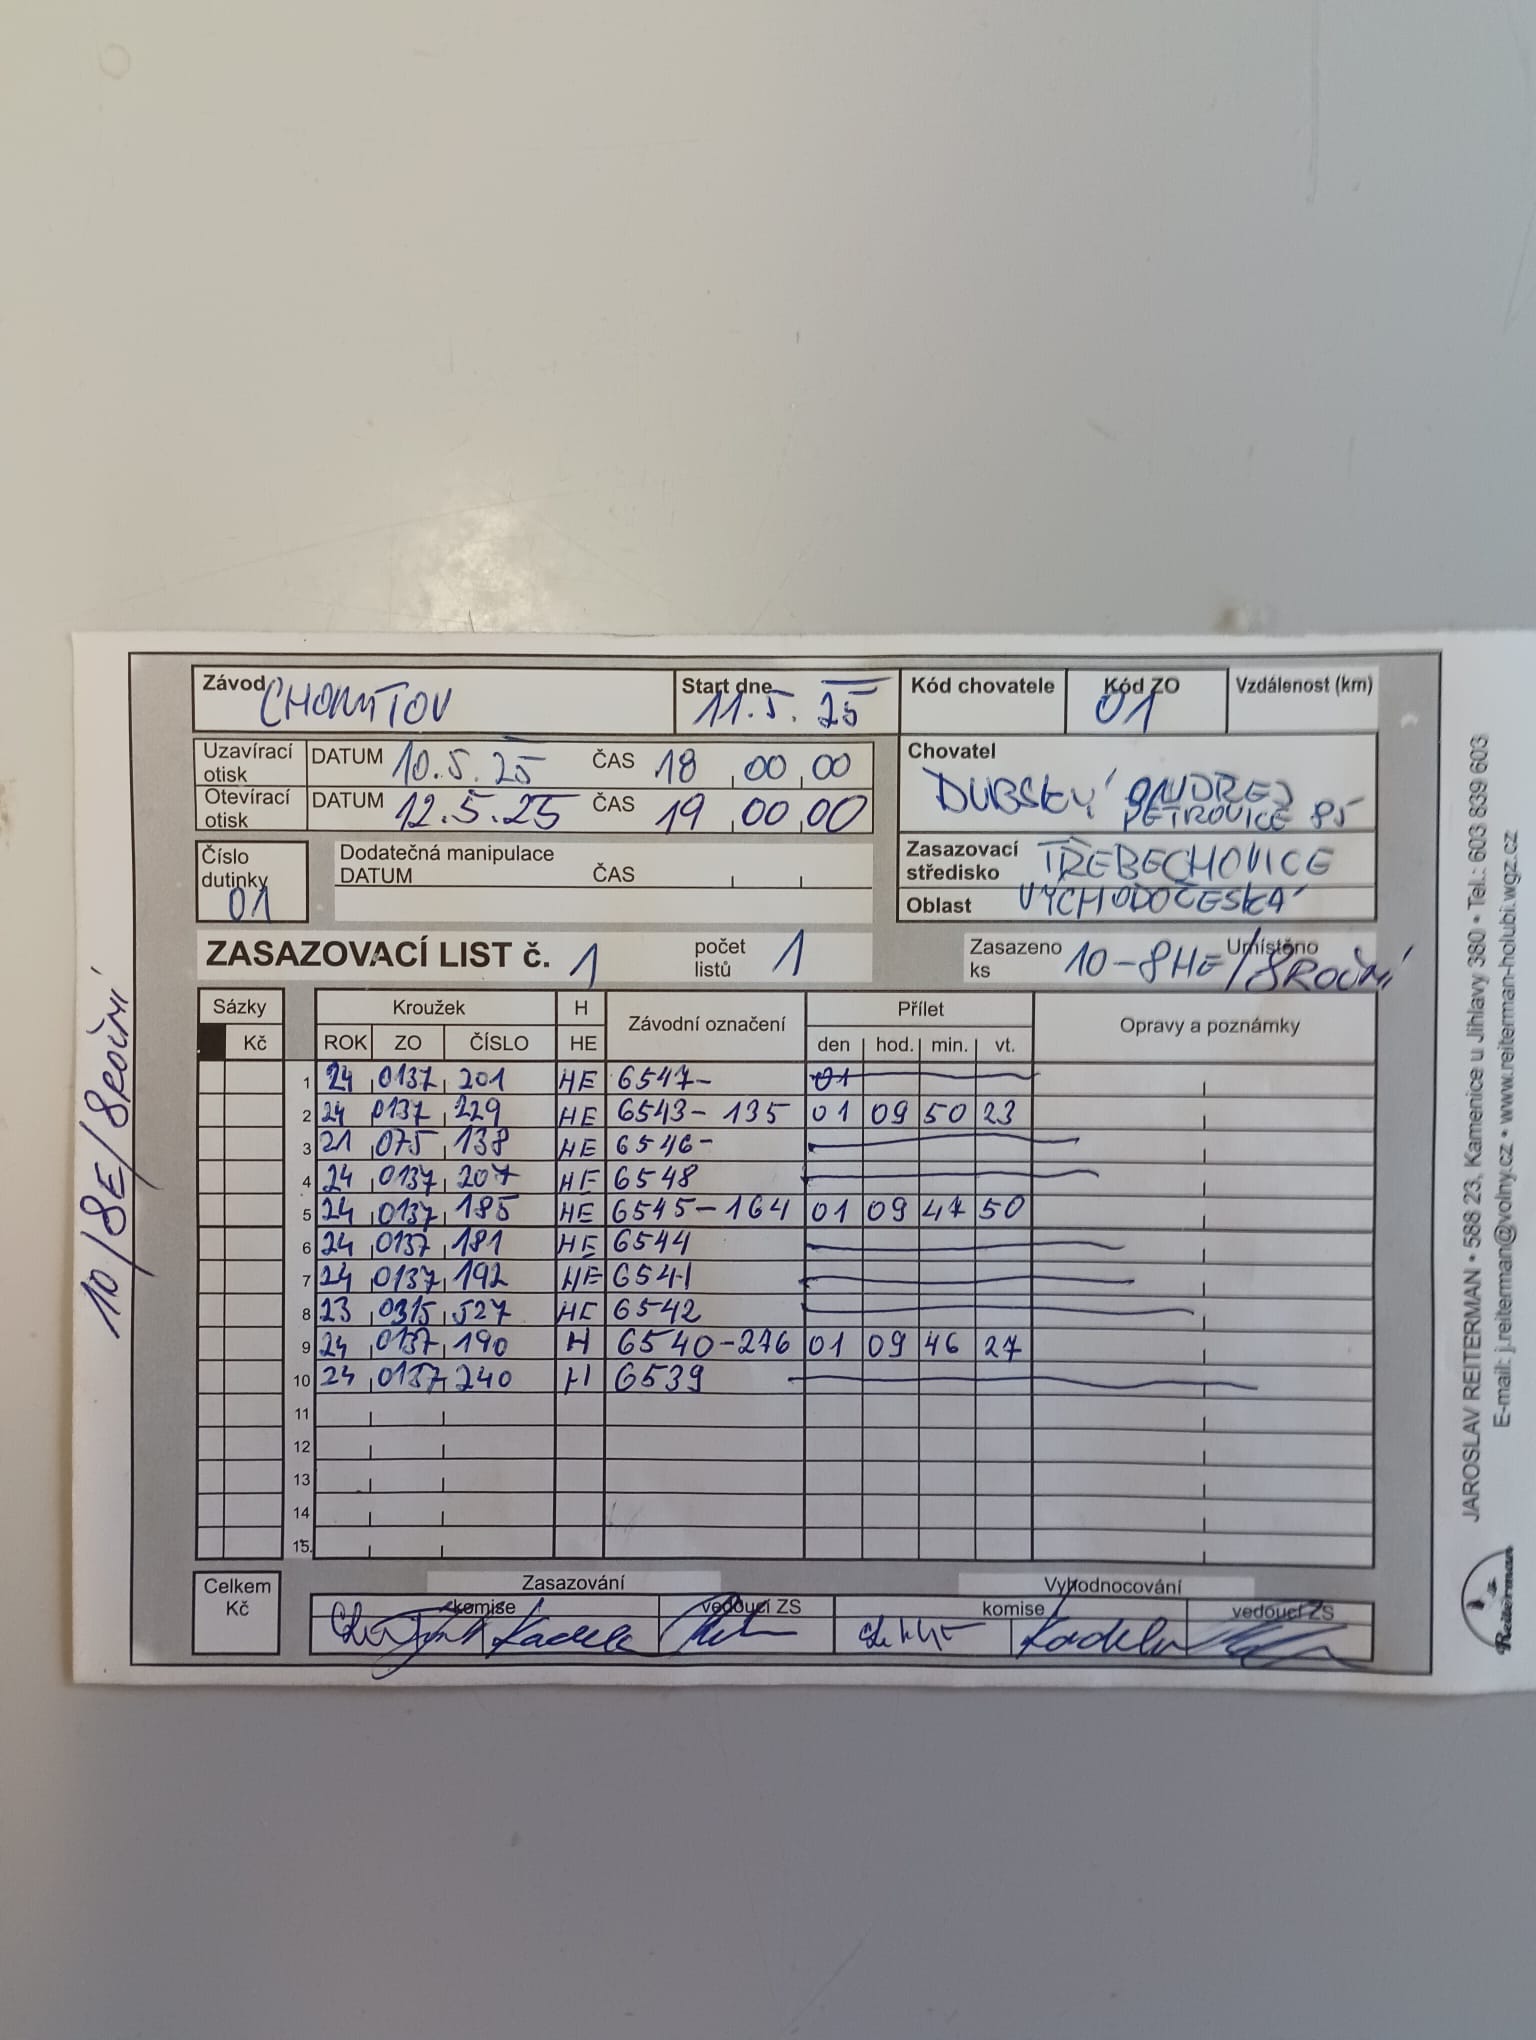 Závod CHOMUTOV Start dne 11.5.25 Kód chovatele Kód ZO 01 Vzdálenost (km)
Uzavírací otisk DATUM 10.5.25 ČAS 18,00,00
Otevírací otisk DATUM 12.5.25 ČAS 19,00,00
Chovatel
DUBSKÝ ONDŘEJ
PETROVICE 85
Číslo dutinky 01
Dodatečná manipulace
DATUM ČAS
Zasazovací středisko TŘEBECHOVICE
Oblast VÝCHODOČESKÁ
ZASAZOVACÍ LIST č. 1 počet listů 1 Zasazeno ks 10-8HE/8ROČNÍ Umístěno
Sázky Kroužek H Závodní označení Přílet Opravy a poznámky
Kč ROK ZO ČÍSLO HE den hod. min. vt.
1 24 0137 201 HE 6547- 01
2 24 0137 229 HE 6543-135 01 09 50 23
3 21 075 138 HE 6546-
4 24 0137 207 HE 6548
5 24 0137 185 HE 6545-164 01 09 47 50
6 24 0137 181 HE 6544
7 24 0137 192 HE 6541
8 23 0315 527 HE 6542
9 24 0137 190 H 6540-276 01 09 46 27
10 24 0137 240 H 6539
11
12
13
14
15.
Celkem Kč
Zasazování Vyhodnocování
komise vedoucí ZS komise vedoucí ZS
Kadela Kadela
10/8E/8ROČNÍ
JAROSLAV REITERMAN • 588 23, Kamenice u Jihlavy 380 • Tel.: 603 839 603
E-mail: j.reiterman@volny.cz • www.reiterman-holubi.wgz.cz
Reiterman